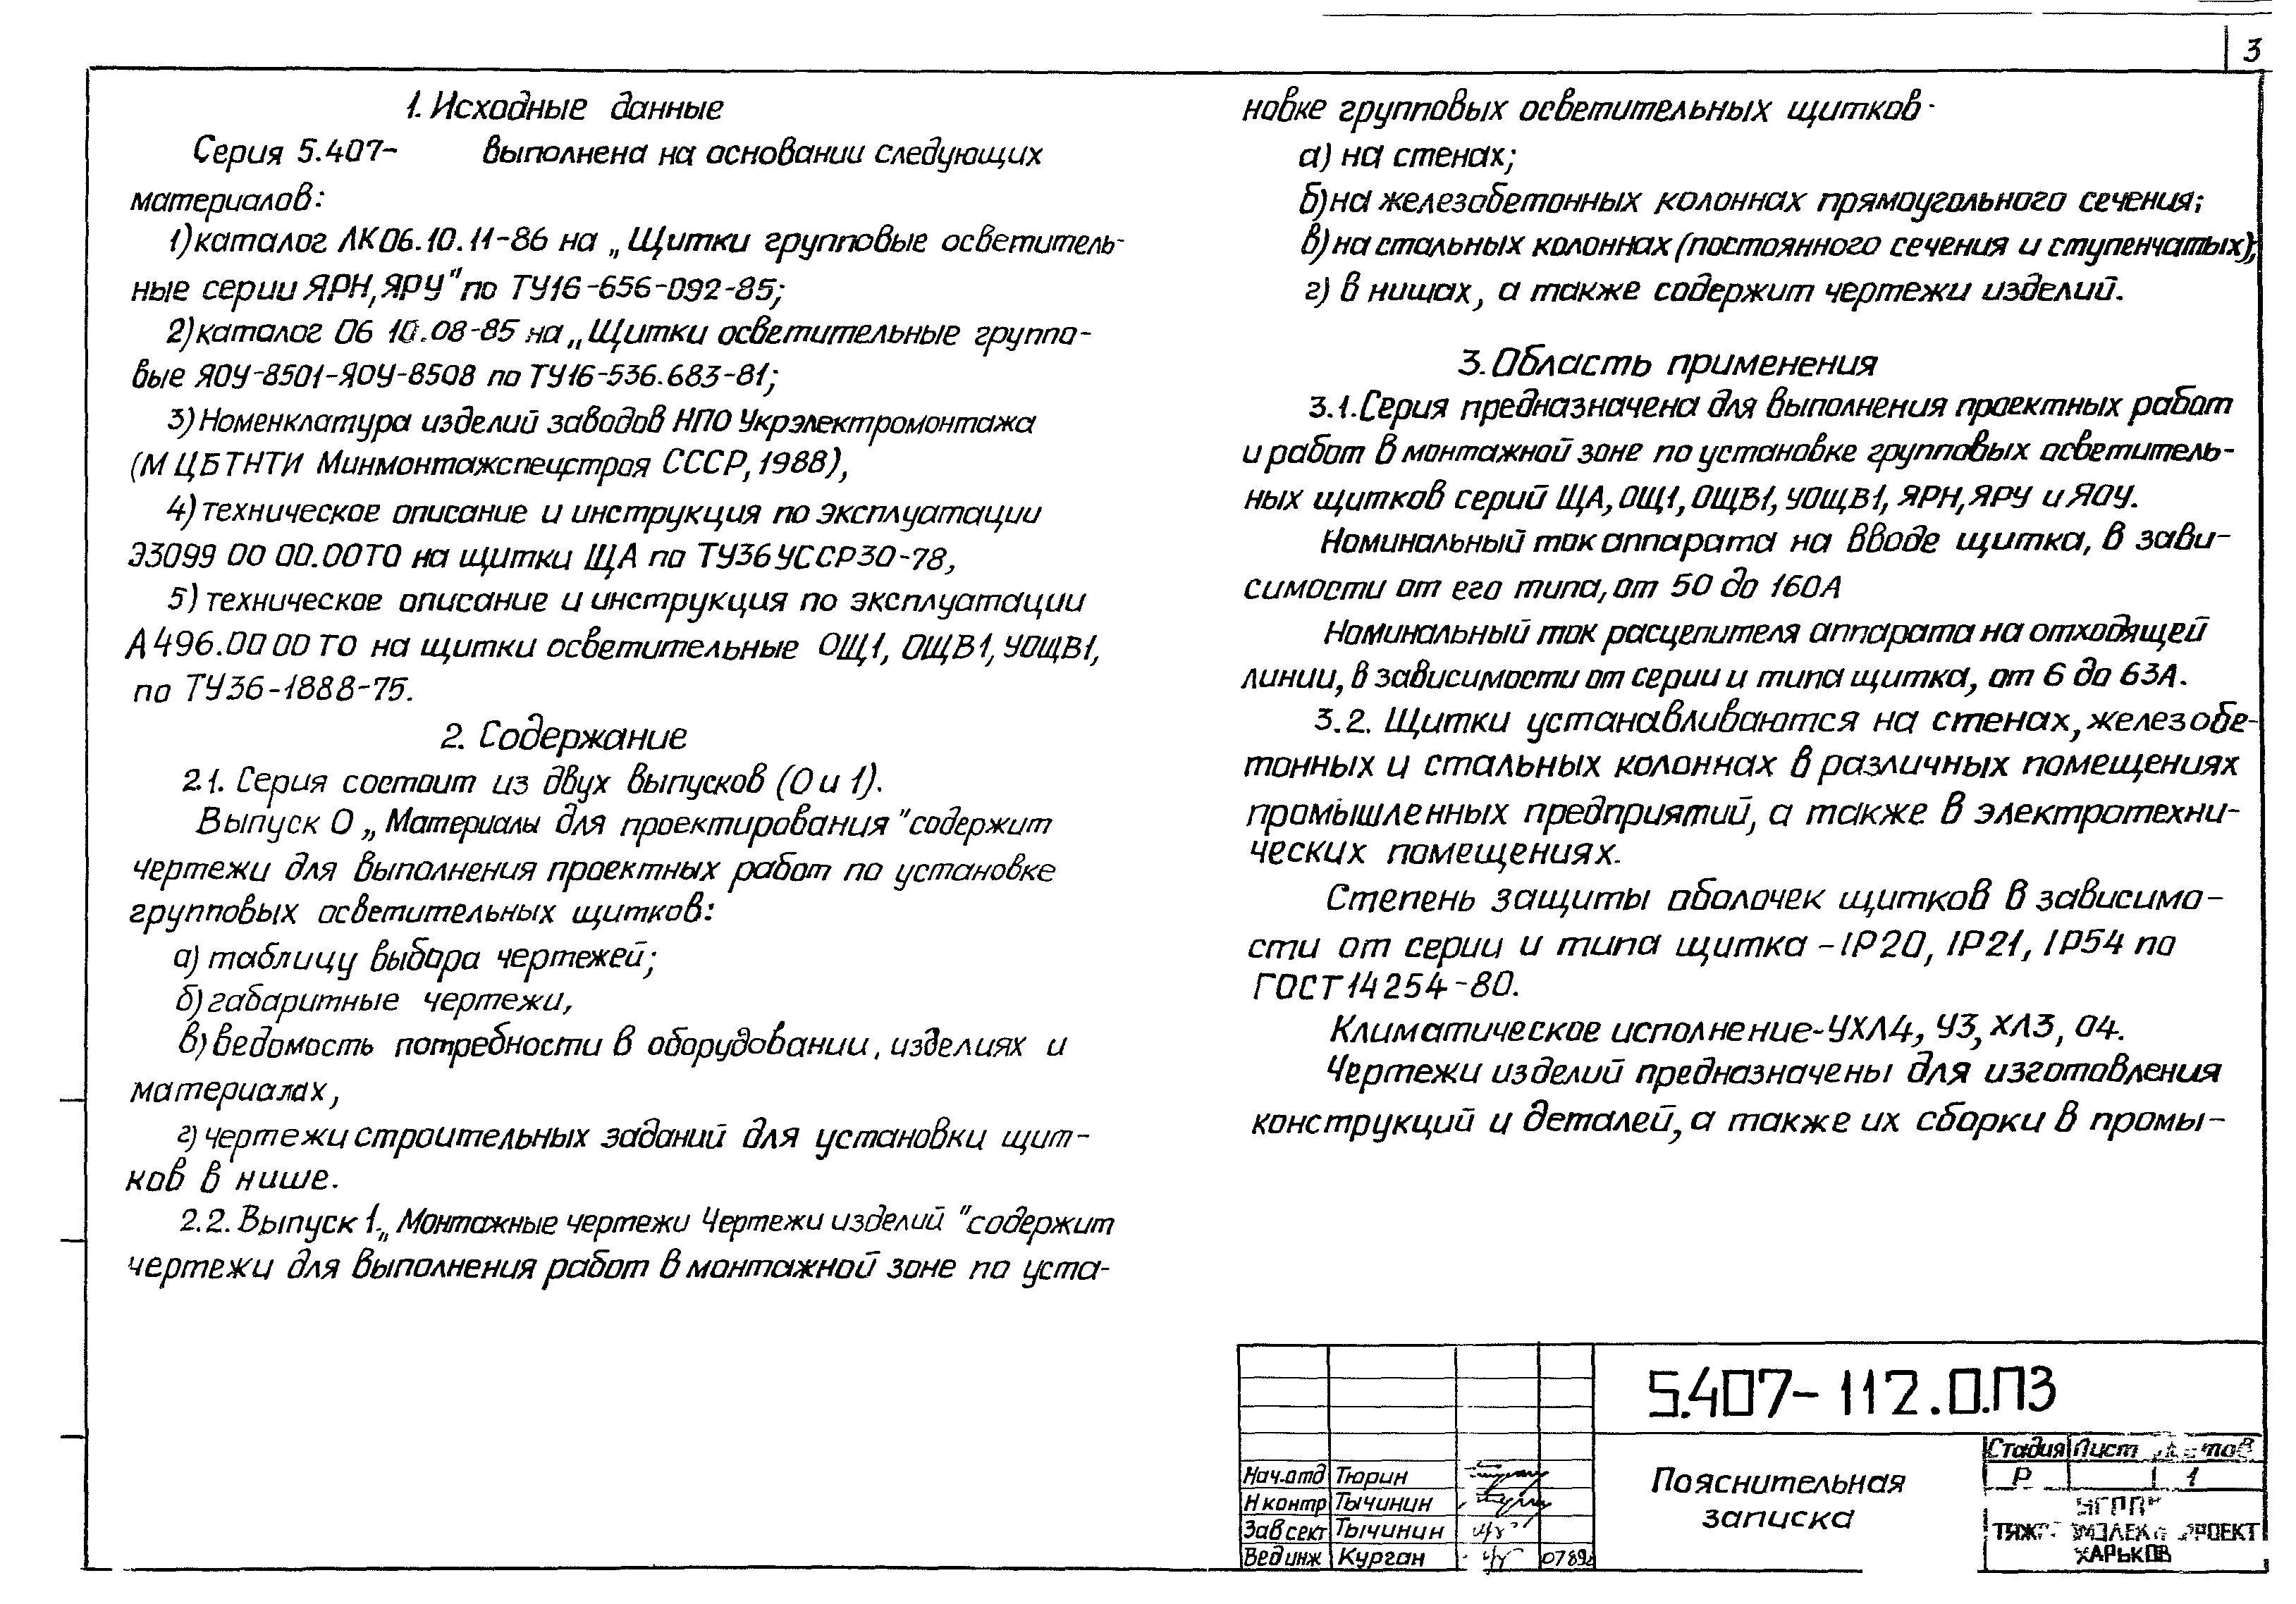 3
1. Исходные данные
Серия 5.407- выполнена на основании следующих
материалов:
1) каталог ЛК06.10.11-86 на „Щитки групповые осветитель-
ные серии ЯРН, ЯРУ" по ТУ16-656-092-85;
2) каталог 06 10.08-85 на „Щитки осветительные группо-
вые ЯОУ-8501-ЯОУ-8508 по ТУ16-536.683-81;
3) Номенклатура изделий заводов НПО Укрэлектромонтажа
(М ЦБТНТИ Минмонтажспецстроя СССР, 1988),
4) техническое описание и инструкция по эксплуатации
ЭЗ099 00 00.00ТО на щитки ЩА по ТУ36УССР30-78,
5) техническое описание и инструкция по эксплуатации
А496.00 00 ТО на щитки осветительные ОЩ1, ОЩВ1, УОЩВ1,
по ТУ36-1888-75.
2. Содержание
2.1. Серия состоит из двух выпусков (0 и 1).
Выпуск 0 „Материалы для проектирования" содержит
чертежи для выполнения проектных работ по установке
групповых осветительных щитков:
а) таблицу выбора чертежей;
б) габаритные чертежи,
в) ведомость потребности в оборудовании, изделиях и
материалах,
г) чертежи строительных заданий для установки щит-
ков в нише.
2.2. Выпуск 1 „Монтажные чертежи Чертежи изделий" содержит
чертежи для выполнения работ в монтажной зоне по уста-
новке групповых осветительных щитков·
а) на стенах;
б) на железобетонных колоннах прямоугольного сечения;
в) на стальных колоннах (постоянного сечения и ступенчатых);
г) в нишах, а также содержит чертежи изделий.
3. Область применения
3.1. Серия предназначена для выполнения проектных работ
и работ в монтажной зоне по установке групповых осветитель-
ных щитков серий ЩА, ОЩ1, ОЩВ1, УОЩВ1, ЯРН, ЯРУ и ЯОУ.
Номинальный ток аппарата на вводе щитка, в зави-
симости от его типа, от 50 до 160А
Номинальный ток расцепителя аппарата на отходящей
линии, в зависимости от серии и типа щитка, от 6 до 63А.
3.2. Щитки устанавливаются на стенах, железобе-
тонных и стальных колоннах в различных помещениях
промышленных предприятий, а также в электротехни-
ческих помещениях.
Степень защиты оболочек щитков в зависимо-
сти от серии и типа щитка - IP20, IP21, IP54 по
ГОСТ 14254-80.
Климатическое исполнение - УХЛ4, У3, ХЛ3, О4.
Чертежи изделий предназначены для изготовления
конструкций и деталей, а также их сборки в промы-
5.407-112.0.ПЗ
Нач.отд Тюрин
Н контр Тычинин
Зав сект Тычинин
Вед инж Курган
Пояснительная
записка
Стадия Лист
Р 1
ХАРЬКОВ